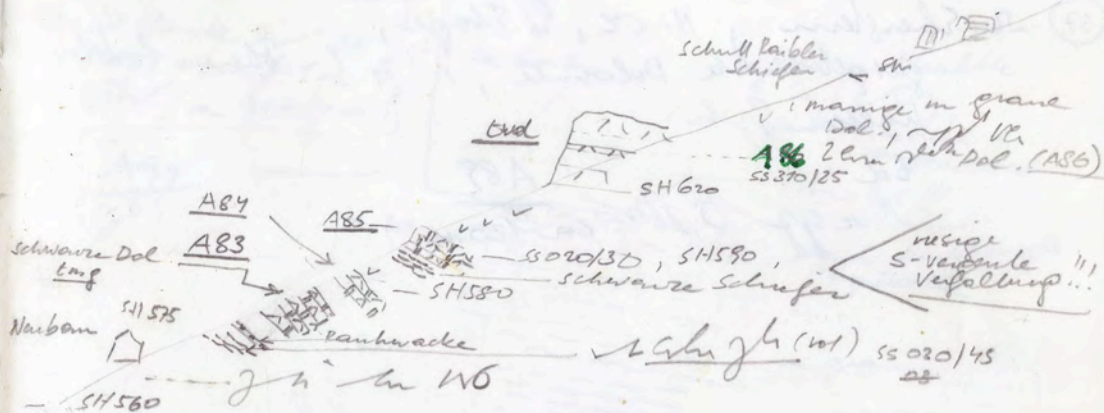 Schutt Raibler
Schiefer
SW
massige m graue
Dol.
twd
A86
Dol. (A86)
SS310/25
SH620
A84
A85
schwarze Dol
A83
tmg
SS020/30, SH590,
schwarze Schiefer
riesige
S-vergente
Verfaltung!!!
SH580
SH575
Neubau
Rauhwacke
(rot)
SS020/45
SH560